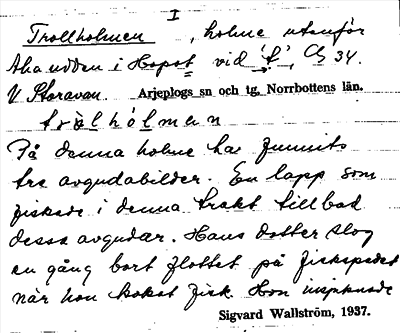 I
Trollholmen, holme utanför
Ahaudden i Hopot vid 't', C 34.
V Storavan. Arjeplogs sn och tg, Norrbottens län.
trålhólmɘn
På denna holme har funnits
tre avgudabilder. En lapp som
fiskade i denna trakt tillbad
dessa avgudar. Hans dotter slog
en gång bort flottet på fiskspadet
när hon kokat fisk. Hon
Sigvard Wallström, 1937.